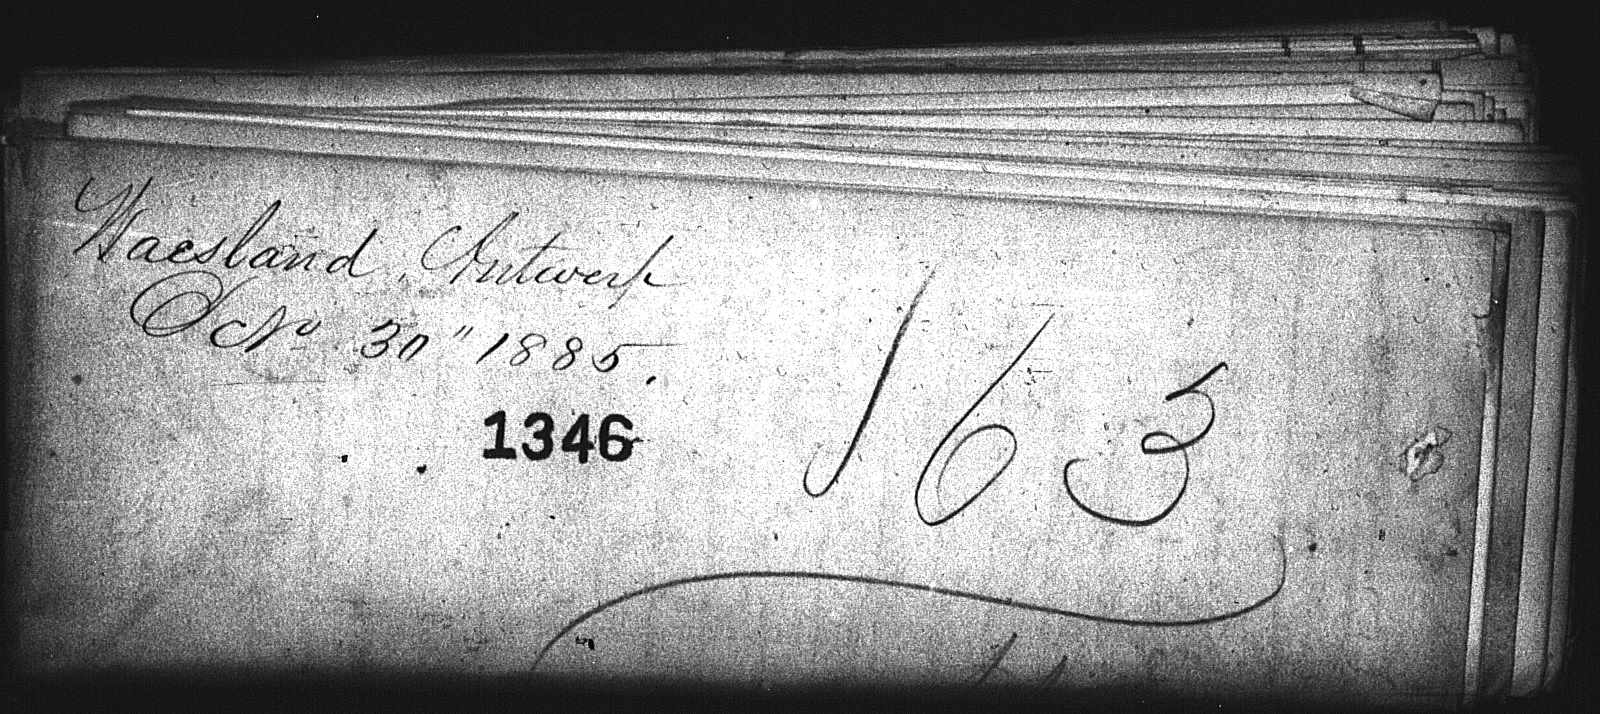 Waesland, Antwerp
No 30" 1885.
1346
163